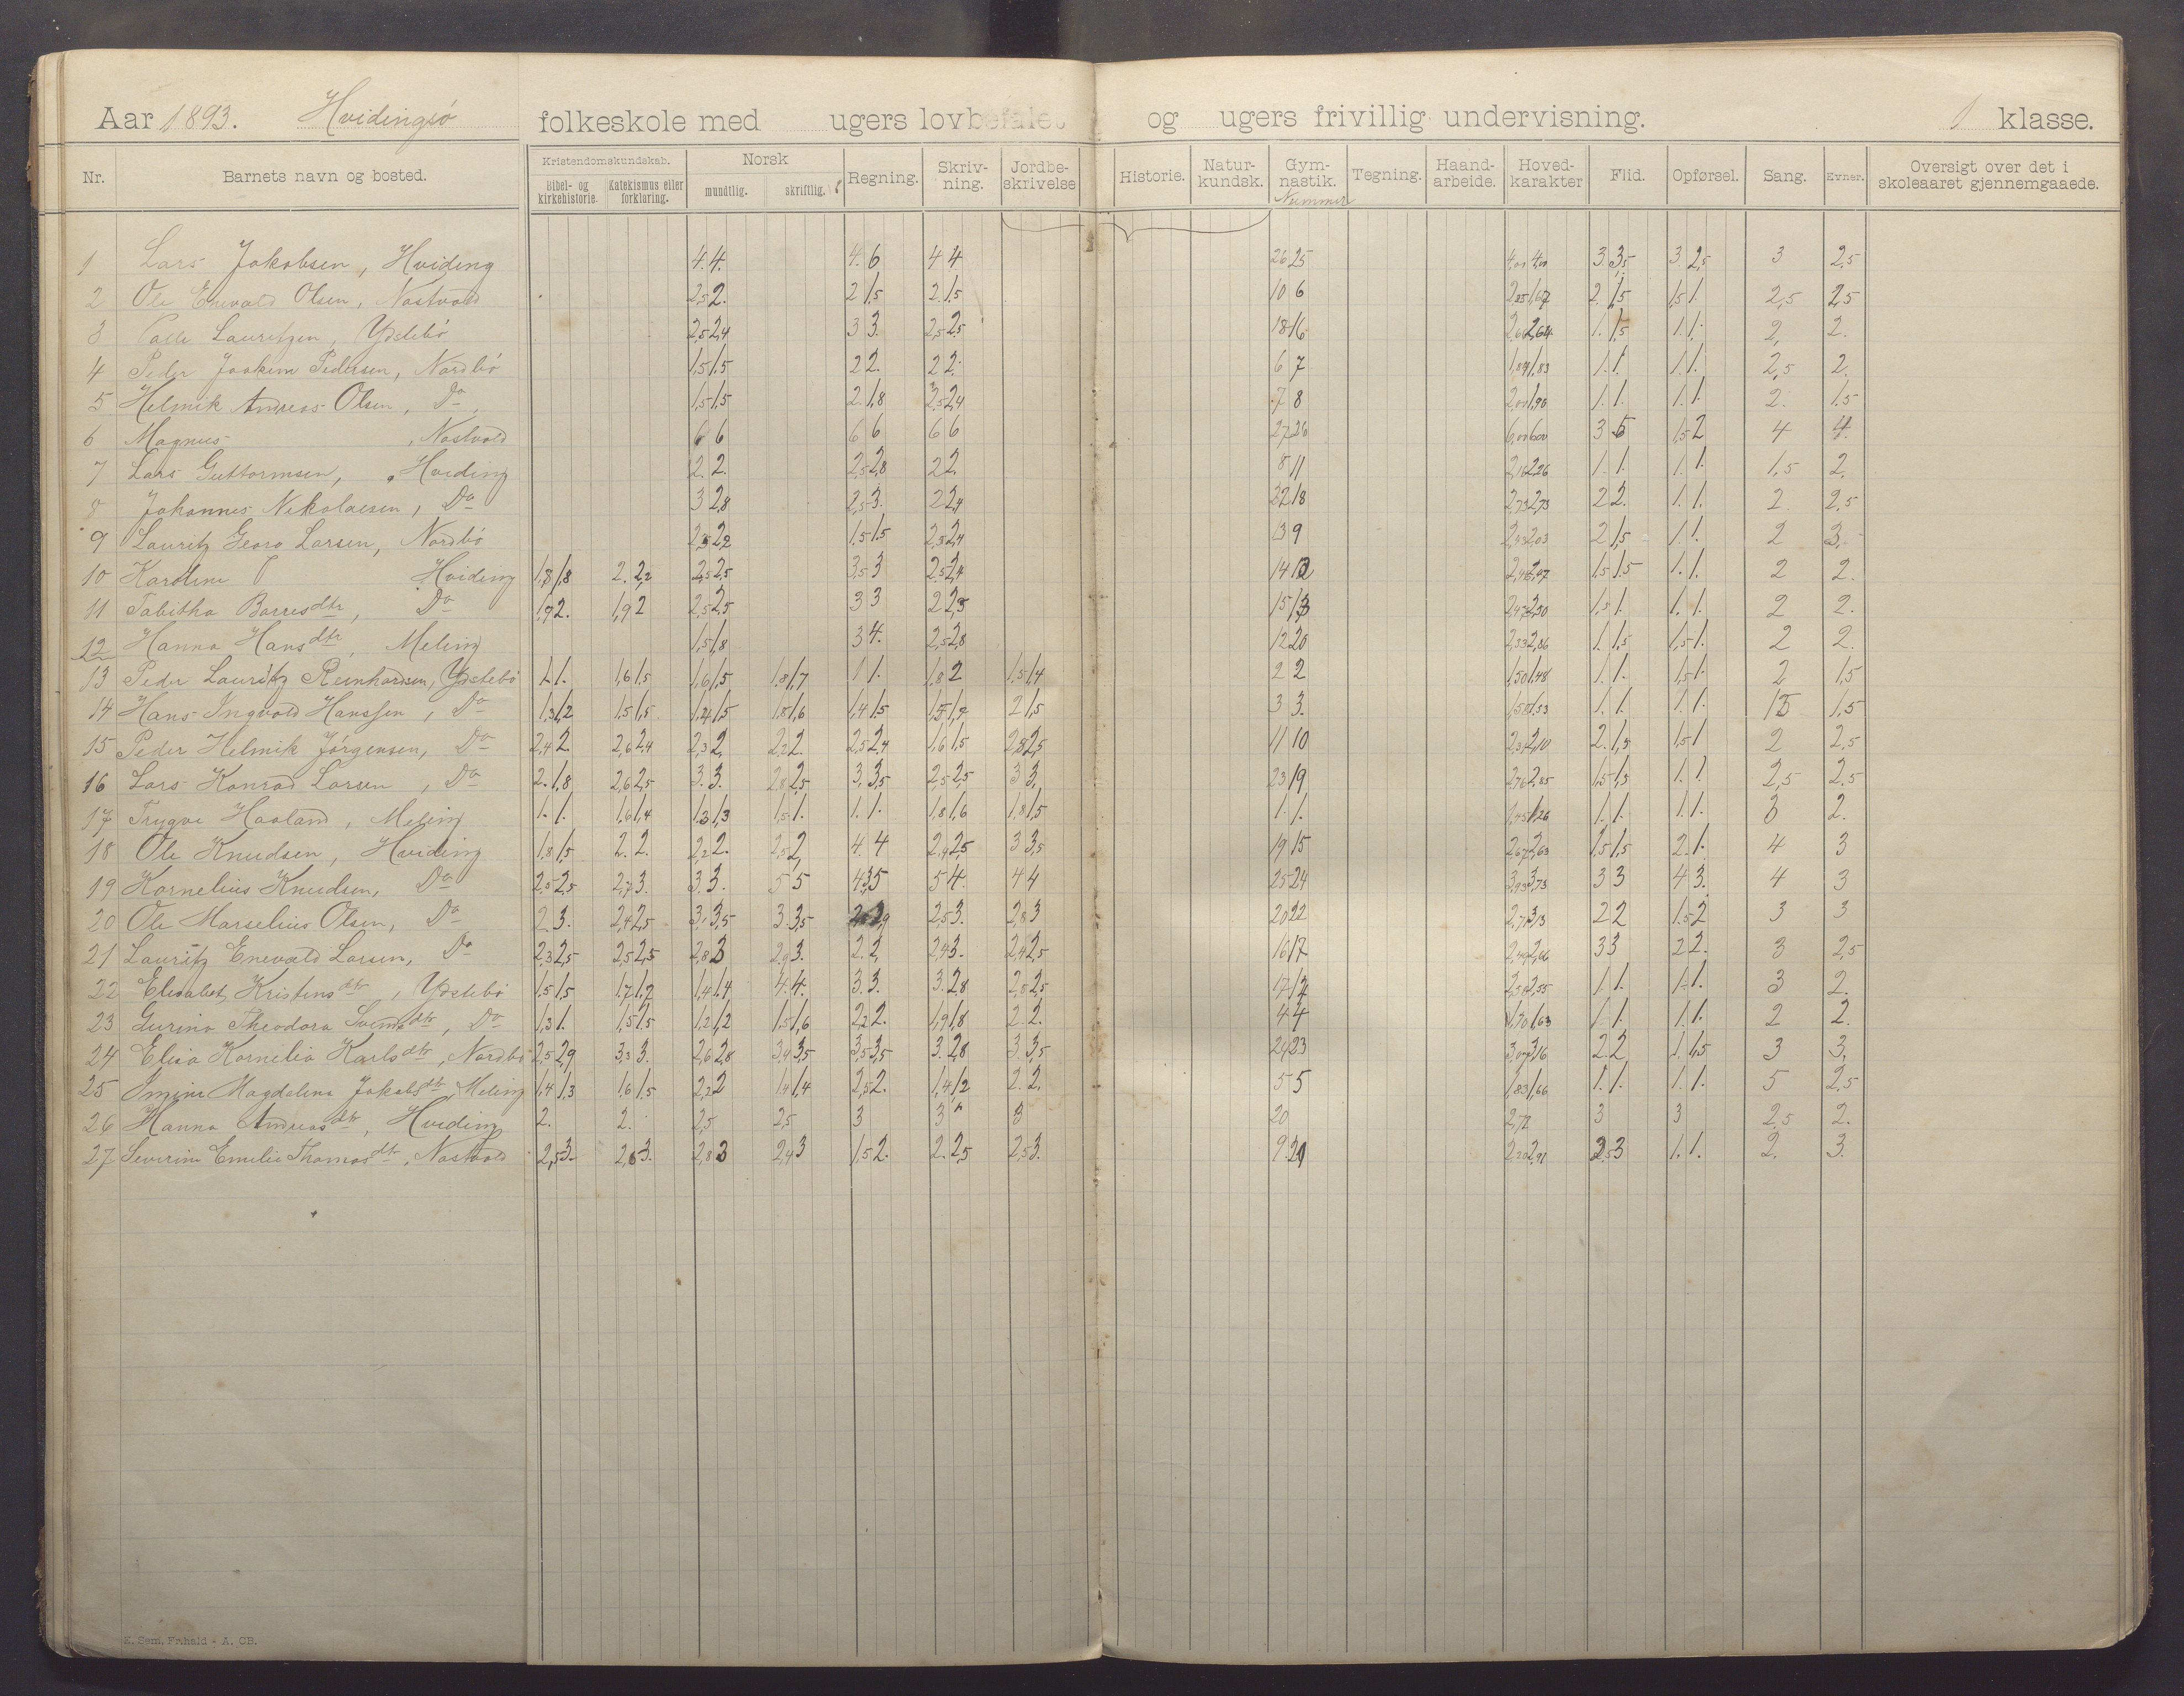 Aar 1893. Hvidingsö folkeskole med ugers lovbefalet og ugers frivillig undervisning. 1 klasse.
Nr. Barnets navn og bosted. Kristendomskundskab. Bibel- og kirkehistorie. Katekismus eller forklaring. Norsk mundtlig. skriftlig. Regning. Skriv-ning. Jordbe-skrivelse Historie. Natur-kundsk. Gym-nastik. Nummer Tegning. Haand-arbeide. Hoved-karakter Flid. Opførsel. Sang. Evner. Oversigt over det i skoleaaret gjennemgaaede.
1 Lars Jakobsen, Hviding 4. 4. 4. 6 4 4 26 25 4,00 4,00 3. 3,5 3. 2,5 3 2,5
2 Ole Enevald Olsen, Nostvold 2,5 2. 2 1,5 2. 1,5 10 6 2. 1,5 1,5 1. 2,5 2,5
3 Lauritzen, Ydstebö 2,5 2,4 3 3. 2,5 2,5 18 16 2,64 1. 1,5 1. 1. 2, 2.
4 Peder Joakim Pedersen, Nordbö 1,5 1,5 2 2. 2 2. 6 7 1,83 1. 1. 1. 1. 2,5 2.
5 Helmik Andreas Olsen, Do 1,5 1,5 2. 1,8 2,5 2,4 7 8 2,00 1,90 1. 1. 1. 1. 2. 1.5
6 Magnus , Nostvold 6 6 6 6 6 6 27 26 6,00 6,00 3 5 1,5 2 4 4.
7 Lars Guttormsen, Hviding 2. 2. 2,5 2,8 2 2. 8 11 2,16 2,26 1. 1. 1. 1. 1,5 2.
8 Johannes Nikolaisen, Do 3 2,8 2,5 3. 2 2,4 22 18 2,73 2,73 2 2. 1. 1. 2. 2,5
9 Lauritz Georg Larsen, Nordbö 2,2 1.5 1.5 2,4 13 9 2,43 2,03 2 1,5 1. 1. 2 3.
10 Karoline Hviding 1,8 1,8 2. 2,2 2,5 2,5 3,5 3 2,5 2,4 14 1. 1. 2 2.
11 Tabitha Barresdtr, Do 1,9 2. 1,9 2 2,5 2,5 3 3 2 2,5 15 13 1,5 1. 1. 1. 2 2.
12 Hanna Hansdtr, Meling 1,5 1,8 3 4. 2,5 2,8 12 20 2,33 2,86 1. 1,5 1,5 1. 2 2.
13 Peder Lauritz Reinhardsen, Ydstebö 1. 1. 1,6 1,5 1,6 1,5 1,8 1,7 1 1. 1,8 2 1,5 1,4 2 2 1,50 1,48 1. 1. 1,5 1. 2, 1,5
14 Hans Ingvald Hanssen, Do 1,3 1,2 1,5 1,5 1,4 1,5 1,8 1,6 1,4 1,5 2 1,5 3 3. 1,53 1. 1. 1. 1. 1,5
15 Peder Helmik Jörgensen, Do 2,4 2. 2,6 2,4 2,3 2. 2,2 2. 2,5 2,4 1,6 1,5 2,5 11 10 2,10 2. 1,5 1,5 1 2 2.5
16 Lars Konrad Larsen, Do 2. 1,8 2,6 2,5 3. 3. 2,8 2,5 3, 3,5 2,5 2,5 3 3. 23 19 2,76 2,85 1,5 1,5 1. 1. 2,5 2.5
17 Trygve Haaland, Meling 1. 1. 1,6 1,4 1,3 1,3 1,5 1. 1. 1. 1,8 1,6 1,8 1,5 1. 1. 1,26 1. 1. 1. 1. 3 2.
18 Ole Knudsen, Hviding 1,8 1,5 2. 2. 2,2 2. 2,5 2, 4. 4 2,9 2,5 3 3,5 19 15 2,67 2,63 1,5 1,5 2 1. 4 3
19 Kornelius Knudsen, Do 2,5 2,5 2,7 3. 3. 3. 5 5 5 4. 4 4 25 24 3,93 3,73 3 3 4 3. 4 3
20 Ole Marselius Olsen, Do 2 3. 2,4 2,5 3, 3,5 3. 3,5 2,5 3. 2,8 3 20 22 2,71 3,13 2 2 1.5 2 3 3
21 Lauritz Enevald Larsen, Do 2,3 2,5 2,5 2,5 2,8 3 2,9 3. 2. 2, 2,4 3. 2,4 2,5 16 17 2,49 2,66 3 3 2 2. 3 2,5
22 Elisabet Kristensdtr, Ydstebö 1,5 1,5 1,7 1,7 1,4 1,4 4. 4. 3. 3. 3. 2,8 2,8 2,5 17 2,55 1. 1. 1. 1. 3 2.
23 Gurina Theodora Svensdtr, Do 1,3 1. 1,5 1,5 1,2 1,2 1,5 1,6 2,2 2. 1,9 1,8 2. 2. 4 4 1,70 1,63 1 1. 1. 1. 2 2.
24 Elisa Kornelia Karlsdtr, Nordbö 2,5 2,9 3,3 3. 2,6 2,8 3,4 3,5 3,5 3,5 3. 2,8 3. 3,5 24 23 3,16 2. 2 1. 1,5 3 3.
25 Magdalena Jakobsdtr, Meling 1,4 1,3 1,6 1,5 2,2 2 1,4 1,4 2,5 2. 1,4 1,2 2. 2. 5 5 1,83 1,66 1. 1. 1. 1. 5 2,5
26 Hanna Andreasdtr, Hviding 2. 2. 2,5 2,5 3 3 3 20 2,72 3 3 2,5 2.
27 Severine Emilie Thomasdtr, Nostvold 2,5 3. 2,6 3. 2,8 3 2,4 3 1,5 2. 2. 2,5 2,5 3. 9 2,20 2,91 3 1. 1. 2. 3.
K. Sem, Frhald - A. OB.